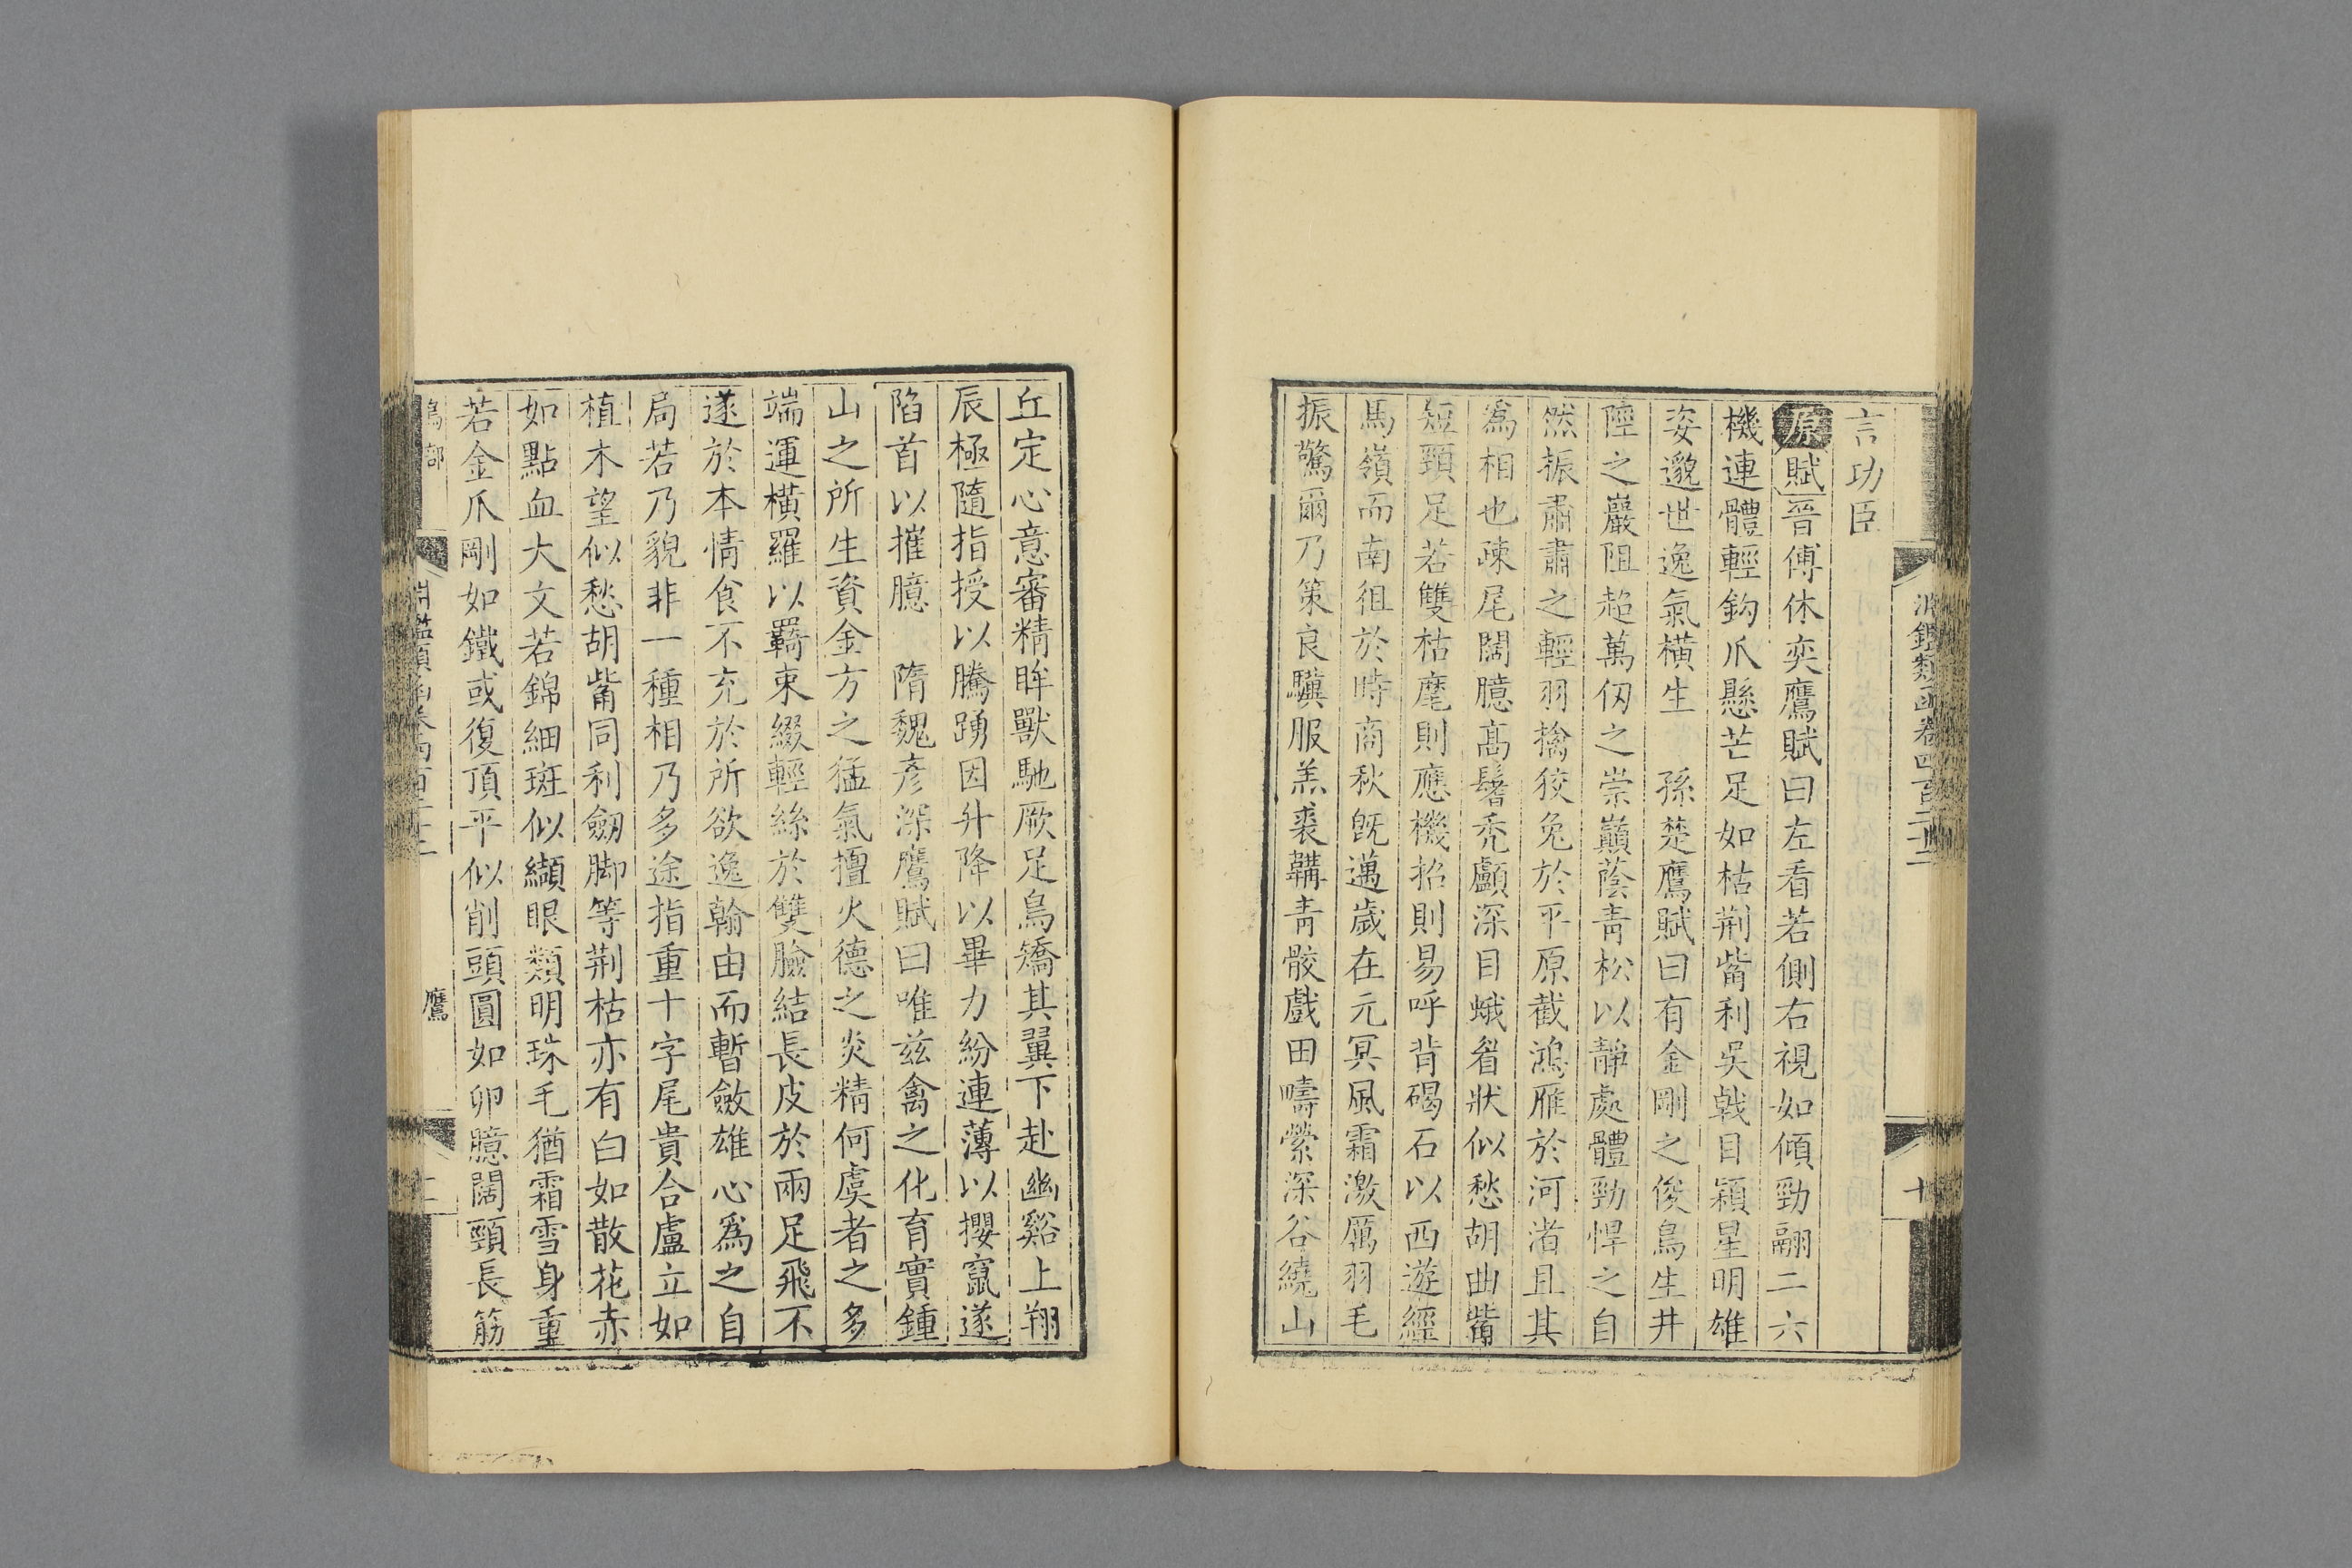 言功臣
原賦晉傅休奕鷹賦曰左看若側右視如傾勁翮二六
機連體輕鈎爪懸芒足如枯荆觜利吳戟目穎星明雄
姿邈世逸氣橫生　孫楚鷹賦曰有金剛之俊鳥生井
陘之巖阻超萬仞之崇巔蔭青松以靜處體勁悍之自
然振肅肅之輕羽擒狡兔於平原截鴻雁於河渚且其
為相也疎尾闊臆高鬐禿顱深目蛾眉狀似愁胡曲觜
短頸足若雙枯麾則應機招則易呼背碣石以西遊經
馬嶺而南徂於時商秋既邁歲在元冥風霜激厲羽毛
振驚爾乃策良驥服羔裘韝青骹戲田疇縈深谷繞山
丘定心意審精眸獸馳厥足鳥矯其翼下赴幽谿上翔
辰極隨指授以騰踴因升降以畢力紛連薄以攖竄遂
陷首以摧臆　隋魏彥深鷹賦曰唯茲禽之化育實鍾
山之所生資金方之猛氣擅火德之炎精何虞者之多
端運橫羅以羈束綴輕絲於雙臉結長皮於兩足飛不
遂於本情食不充於所欲逸翰由而暫斂雄心為之自
局若乃貌非一種相乃多途指重十字尾貴合盧立如
植木望似愁胡觜同利劒脚等荆枯亦有白如散花赤
如點血大文若錦細斑似纈眼類明珠毛猶霜雪身重
若金爪剛如鐵或復頂平似削頭圓如卵臆闊頸長筋
鷹